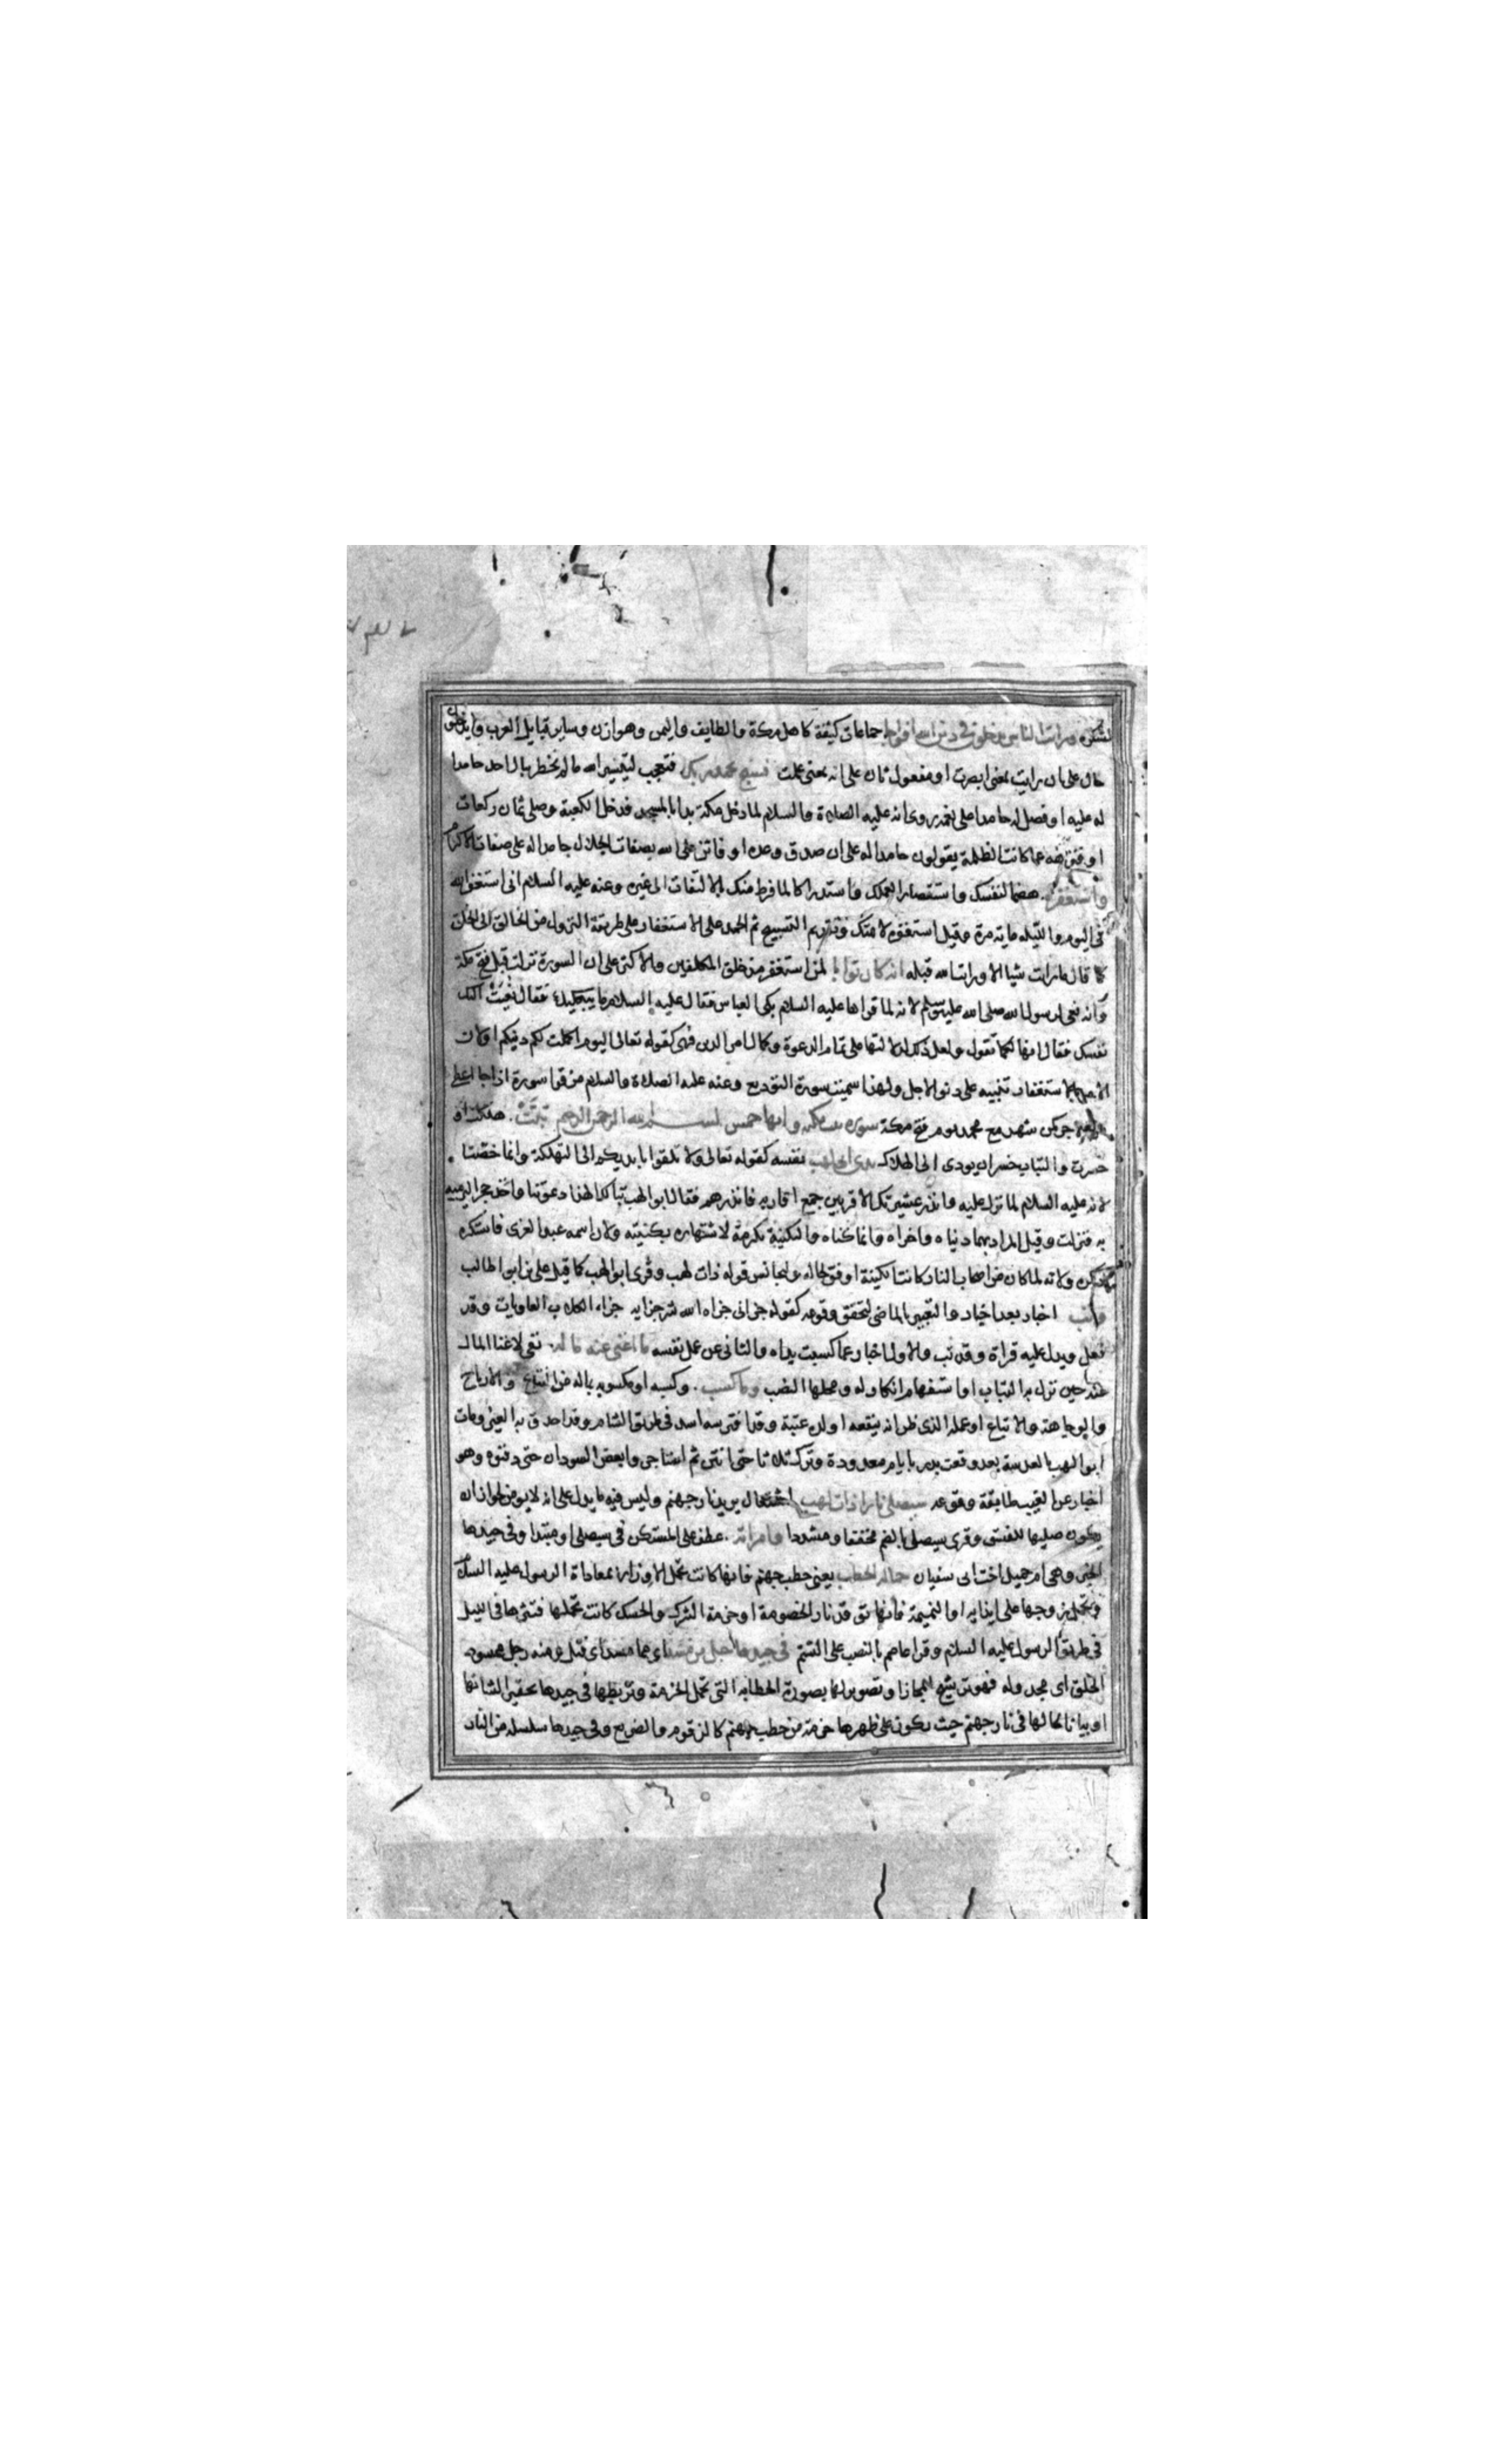 لشكره ورايت الناس يدخلون في دين الله افواجا جماعات كثيفة كاهل مكة والطايف واليمن وهوازن وساير قبايل العرب ويدخلون
حال على ان رايت بمعنى ابصرت او مفعول ثان على انه بمعنى علمت فسبح بحمد ربك فتعجب لتيسير الله ما لم يخطر ببال احد حامدا
له عليه او فصل له حامدا على نعمه روى انه عليه الصلاة والسلام لما دخل مكة بدا بالمسجد فدخل الكعبة وصلى ثمان ركعات
او فنزهه عما كانت الظلمة يقولون حامدا له على ان صدق وعده او فاثن على الله بصفات الجلال حامدا له على صفات الاكرام
واستغفره هضما لنفسك واستقصارا لعملك واستدراكا لما فرط منك بالالتفات الى غيره وعنه عليه السلام انى استغفر الله
فى اليوم والليله مايه مرة وقيل استغفره لامتك وتقديم التسبيح ثم الحمد على الاستغفار على طريقة النزول من الخالق الى الخلق
كما قال مارايت شيا الا ورايت الله قبله انه كان توابا لمن استغفر من خلق المكلفين والاكثر على ان السورة نزلت قبل فتح مكة
وانه نعى لرسول الله صلى الله عليه وسلم لانه لما قراها عليه السلام بكى العباس فقال عليه السلام ما يبكيك فقال نعيت اليك
نفسك فقال انها لكما تقول ولعل ذلك لدلالتها على تمام الدعوة وكمال امر الدين فهى كقوله تعالى اليوم اكملت لكم دينكم او لان
الامر بالاستغفار تنبيه على دنو الاجل ولهذا سميت سورة التوديع وعنه عليه الصلاة والسلام من قرا سورة اذا جا اعطى
من الاجر كمن شهد مع محمد يوم فتح مكة سورة تبت مكيه وايها خمس بسم الله الرحمن الرحيم تبت هلكت او
خسرت والتباب خسران يودى الى الهلاك يدى ابى لهب نفسه كقوله تعالى ولا تلقوا بايديكم الى التهلكة وانما خصتا
لانه عليه السلام لما نزل عليه وانذر عشيرتك الاقربين جمع اقاربه فانذرهم فقال ابو لهب تبا لك الهذا دعوتنا واخذ حجرا ليرميه
به فنزلت وقيل المراد بهما دنياه واخراه وانما كناه والتكنية تكرمة لاشتهاره بكنيته ولان اسمه عبد العزى فاستكره
ذكره ولانه لما كان من اصحاب النار كانت الكنية اوفق بحاله وليجانس قوله ذات لهب وقرى ابو لهب كما قيل على بن ابو طالب
وتب اخبار بعد اخبار والتعبير بالماضى لتحقق وقوعه كقوله جزانى جزاه الله شر جزايه جزاء الكلاب العاويات وقد
فعل ويدل عليه قراة وقد تب والاول اخبار عما كسبت يداه والثانى عن عمل نفسه ما اغنى عنه ماله نفى لاغنا المال
عنه حين نزل به التباب او استفهام انكار له ومحلها النصب وما كسب وكسبه او مكسوبه بماله من النتايج والارباح
والوجاهة والاتباع او عمله الذى ظن انه ينفعه او ولده عتبة وقد افترسه اسد فى طريق الشام وقد احدق به العير ومات
ابو لهب بالعدسة بعد وقعت بدر بايام معدودة وترك ثلاثا حتى انتن ثم استاجروا بعض السودان حتى دفنوه وهو
اخبار عن الغيب طابقه وقوعه سيصلى نارا ذات لهب اشتعال يريد نار جهنم وليس فيه ما يدل على انه لا يومن لجواز ان
يكون صليها للفسق وقرى سيصلى بالضم مخففا ومشددا وامراته عطف على المستكن فى سيصلى او مبتدا وفى جيدها
الخبر وهى ام جميل اخت ابى سفيان حمالة الحطب يعنى حطب جهنم فانها كانت تحمل الاوزار بمعاداة الرسول عليه السلام
وتحمل زوجها على ايذايه او النميمة فانها توقد نار الخصومة او حزمة الشوك والحسك كانت تحملها فتنثرها فى الليل
فى طريق الرسول عليه السلام وقرا عاصم بالنصب على الشتم فى جيدها حبل من مسد اى مما مسد اى فتل ومنه رجل ممسود
الخلق اى مجدوله فهو ترشيح للمجاز او تصوير لها بصورة الحطابه التى تحمل الحزمة وتربطها فى جيدها تحقيرا لشانها
او بيانا لحالها فى نار جهنم حيث يكون على ظهرها حزمة من حطب جهنم كالزقوم والضريع وفى جيدها سلسله من النار